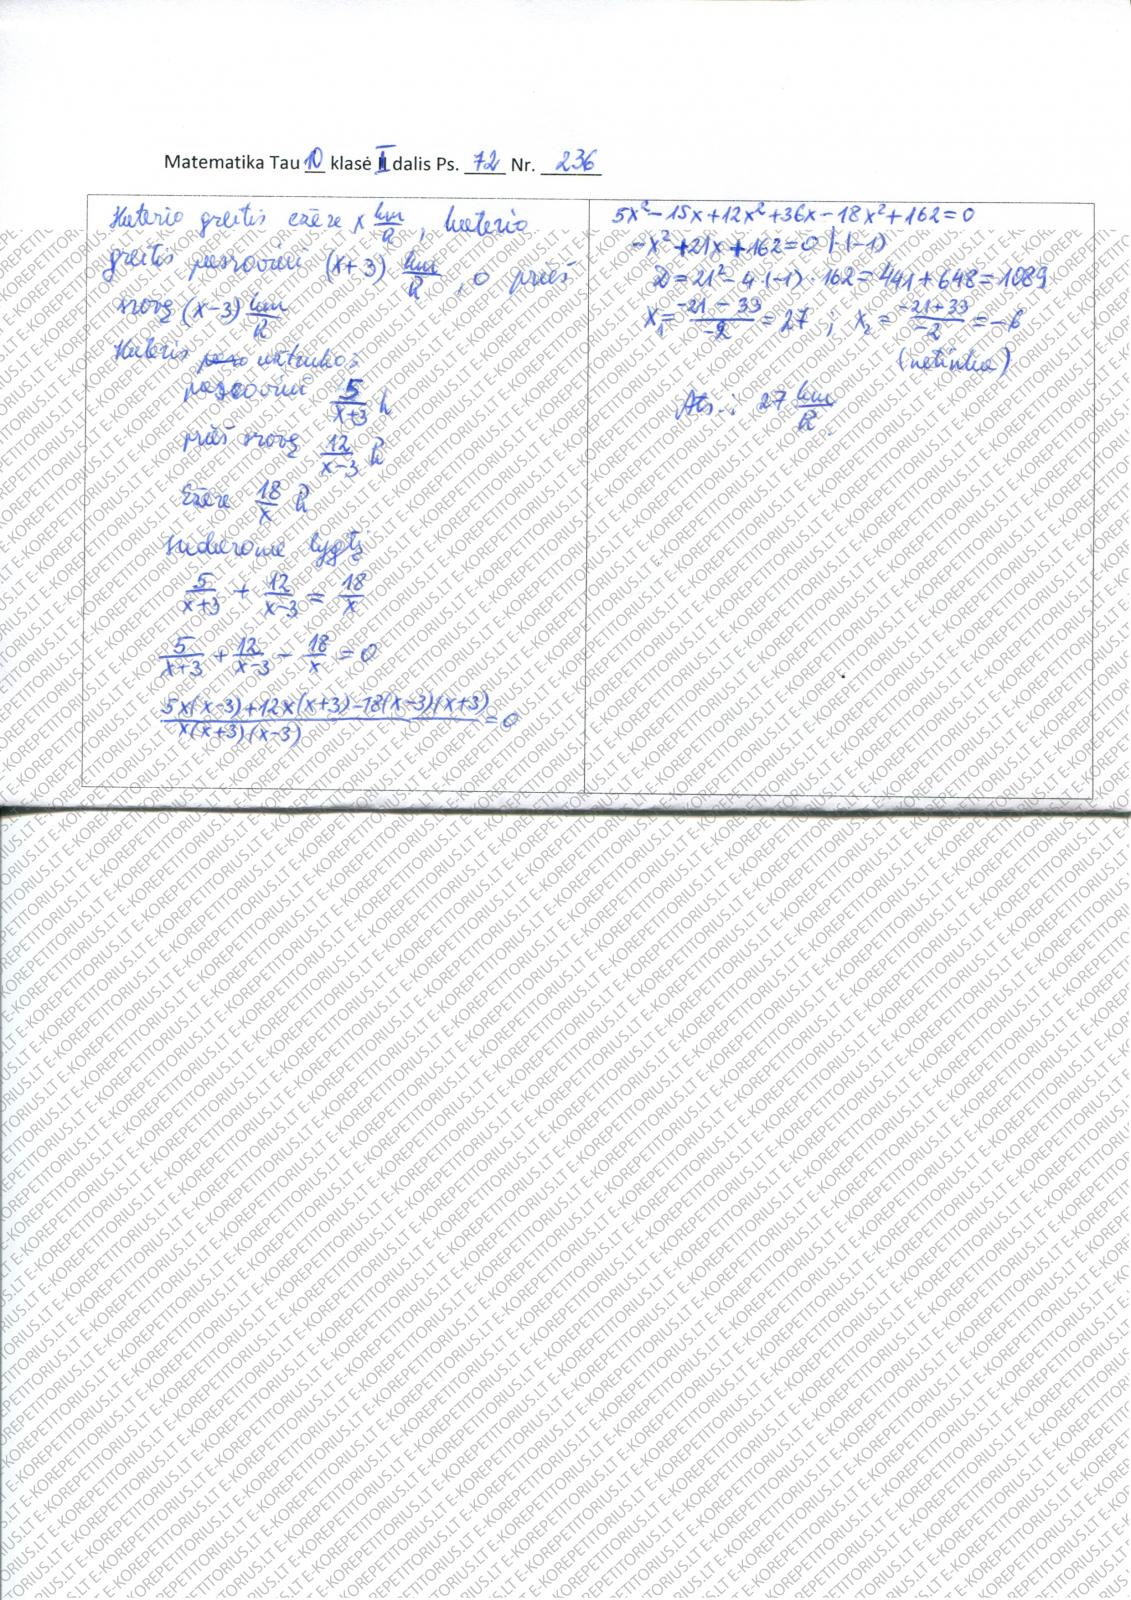 Matematika Tau 10 klasė I dalis Ps. 72 Nr. 236
Kuterio greitis ežere x km/h, kuterio
greitis pasroviui (x+3) km/h, o prieš
srovę (x-3) km/h
Kuteris užtruko:
pasroviui 5/(x+3) h
prieš srovę 12/(x-3) h
Ežere 18/x h
Sudarome lygtį
5/(x+3) + 12/(x-3) = 18/x
5/(x+3) + 12/(x-3) - 18/x = 0
(5x(x-3)+12x(x+3)-18(x-3)(x+3))/(x(x+3)(x-3)) = 0
5x²-15x+12x²+36x-18x²+162=0
-x²+21x+162=0 |·(-1)
D=21²-4·(-1)·162=441+648=1089
x₁=(-21-33)/(-2)=27; x₂=(-21+33)/(-2)=-6
(netinka)
Ats.: 27 km/h.
E-KOREPETITORIUS.LT